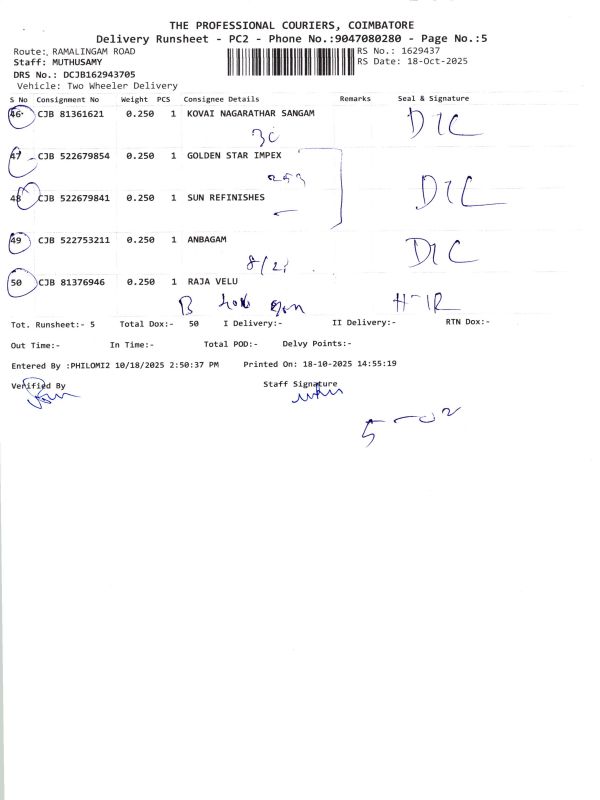 THE PROFESSIONAL COURIERS, COIMBATORE
Delivery Runsheet - PC2 - Phone No.:9047080280 - Page No.:5
Route:, RAMALINGAM ROAD RS No.: 1629437
Staff: MUTHUSAMY RS Date: 18-Oct-2025
DRS No.: DCJB162943705
Vehicle: Two Wheeler Delivery
S No Consignment No Weight PCS Consignee Details Remarks Seal & Signature
46 CJB 81361621 0.250 1 KOVAI NAGARATHAR SANGAM
47 CJB 522679854 0.250 1 GOLDEN STAR IMPEX
48 CJB 522679841 0.250 1 SUN REFINISHES
49 CJB 522753211 0.250 1 ANBAGAM
50 CJB 81376946 0.250 1 RAJA VELU
Tot. Runsheet:- 5 Total Dox:- 50 I Delivery:- II Delivery:- RTN Dox:-
Out Time:- In Time:- Total POD:- Delvy Points:-
Entered By :PHILOMI2 10/18/2025 2:50:37 PM Printed On: 18-10-2025 14:55:19
Verified By Staff Signature